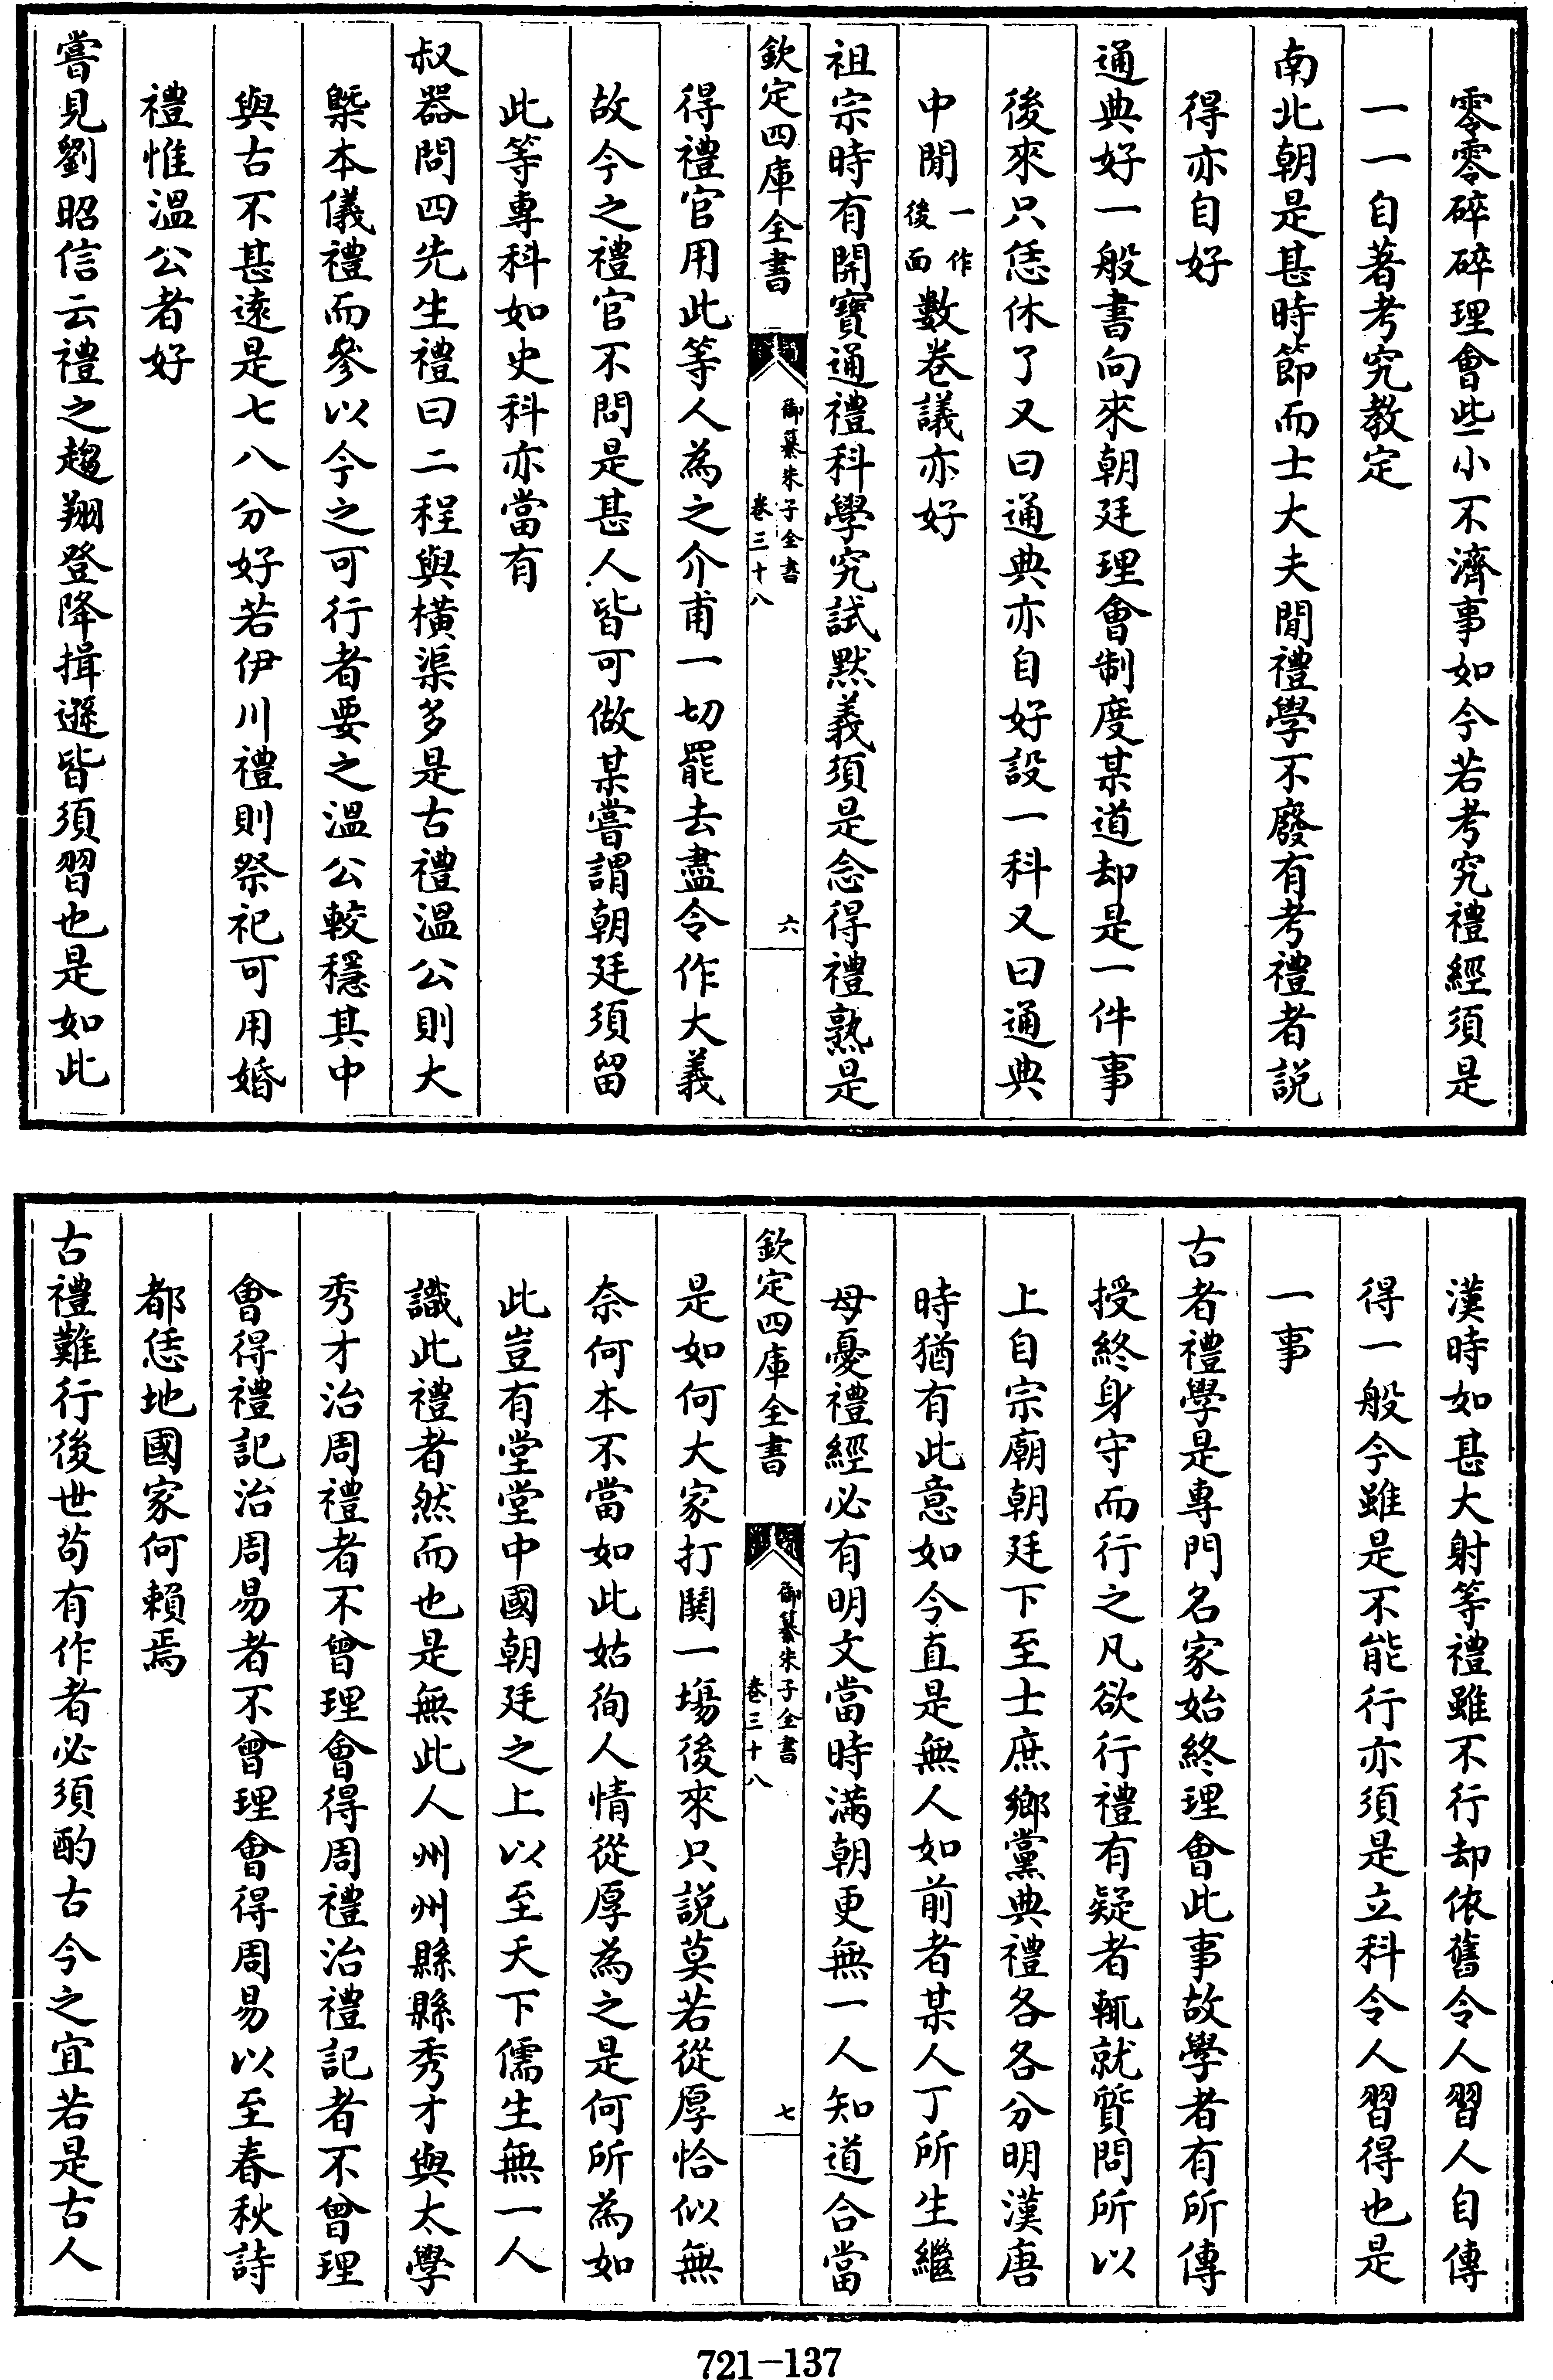 零零碎碎理會些小不濟事如今若考究禮經須是
一一自著考究教定
南北朝是甚時節而士大夫間禮學不廢有考禮者說
得亦自好
通典好一般書向來朝廷理會制度某道却是一件事
後來只恁休了又曰通典亦自好設一科又曰通典
中間一作後面數卷議亦好
祖宗時有開寶通禮科學究試默義須是念得禮熟是
欽定四庫全書 御纂朱子全書 卷三十八 六
得禮官用此等人為之介甫一切罷去盡令作大義
故今之禮官不問是甚人皆可做某嘗謂朝廷須留
此等專科如史科亦當有
叔器問四先生禮曰二程與橫渠多是古禮溫公則大
槩本儀禮而參以今之可行者要之溫公較穩其中
與古不甚遠是七八分好若伊川禮則祭祀可用婚
禮惟溫公者好
嘗見劉昭信云禮之趨翔登降揖遜皆須習也是如此
漢時如甚大射等禮雖不行却依舊令人習人自傳
得一般今雖是不能行亦須是立科令人習得也是
一事
古者禮學是專門名家始終理會此事故學者有所傳
授終身守而行之凡欲行禮有疑者輒就質問所以
上自宗廟朝廷下至士庶鄉黨典禮各各分明漢唐
時猶有此意如今直是無人如前者某人丁所生繼
母憂禮經必有明文當時滿朝更無一人知道合當
欽定四庫全書 御纂朱子全書 卷三十八 七
是如何大家打鬨一場後來只說莫若從厚恰似無
奈何本不當如此姑徇人情從厚為之是何所為如
此豈有堂堂中國朝廷之上以至天下儒生無一人
識此禮者然而也是無此人州州縣縣秀才與太學
秀才治周禮者不曾理會得周禮治禮記者不曾理
會得禮記治周易者不曾理會得周易以至春秋詩
都恁地國家何賴焉
古禮難行後世苟有作者必須酌古今之宜若是古人
721-137